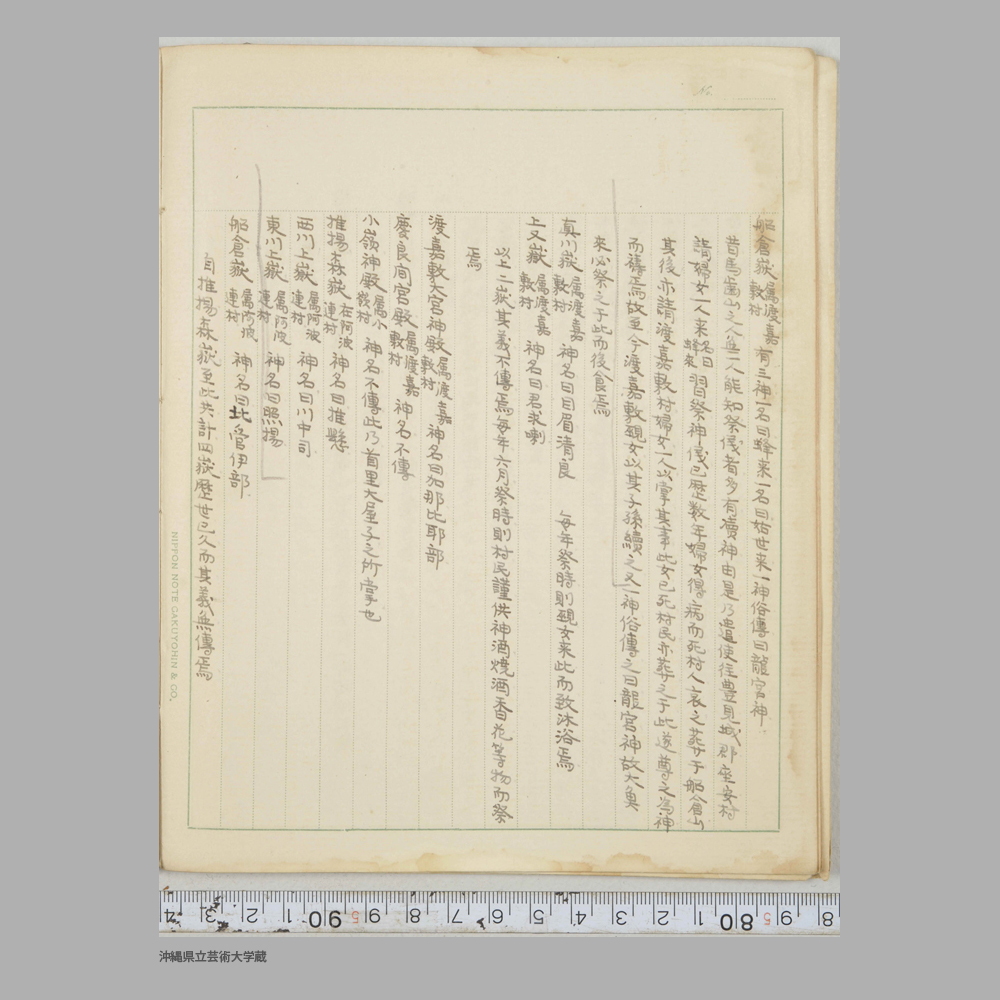 船倉嶽 屬渡嘉敷村 有三神一名曰蜂来一名曰始世来一神俗傳曰龍宮神
昔馬歯山之人無一人能知祭儀者多有凟神由是乃遣使往豊見城郡座安村
請婦女一人来 名曰蜂来 習祭神儀已歴数年婦女得病而死村人哀之葬于船倉山
其後亦請渡嘉敷村婦女一人以掌其事此女已死村民亦葬之于此遂尊之為神
而禱焉故至今渡嘉敷覡女以其子孫續之又一神俗傳之曰龍宮神故大魚
来必祭之于此而後食焉
真川嶽 屬渡嘉敷村 神名曰目眉清良 毎年祭時則覡女来此而致沐浴焉
上又嶽 屬渡嘉敷村 神名曰君求喇
以上二嶽其義不傳焉毎年六月祭時則村民謹供神酒焼酒香花等物而祭
焉
渡嘉敷大宮神殿 屬渡嘉敷村 神名曰加那比耶部
慶良間宮殿 屬渡嘉敷村 神名不傳
小嶺神殿 屬小嶺村 神名不傳此乃首里大屋子之所掌也
推揚森嶽 在阿波連村 神名曰推懸
西川上嶽 屬阿波連村 神名曰川中司
東川上嶽 屬阿波連村 神名曰照揚
船倉嶽 屬阿波連村 神名曰北管伊部
自推揚森嶽至此共計四嶽歴世已久而其義無傳焉
NIPPON NOTE GAKUYOHIN & CO.
4 3 2 1 90 9 8 7 6 5 4 3 2 1 80 9 8
沖縄県立芸術大学蔵